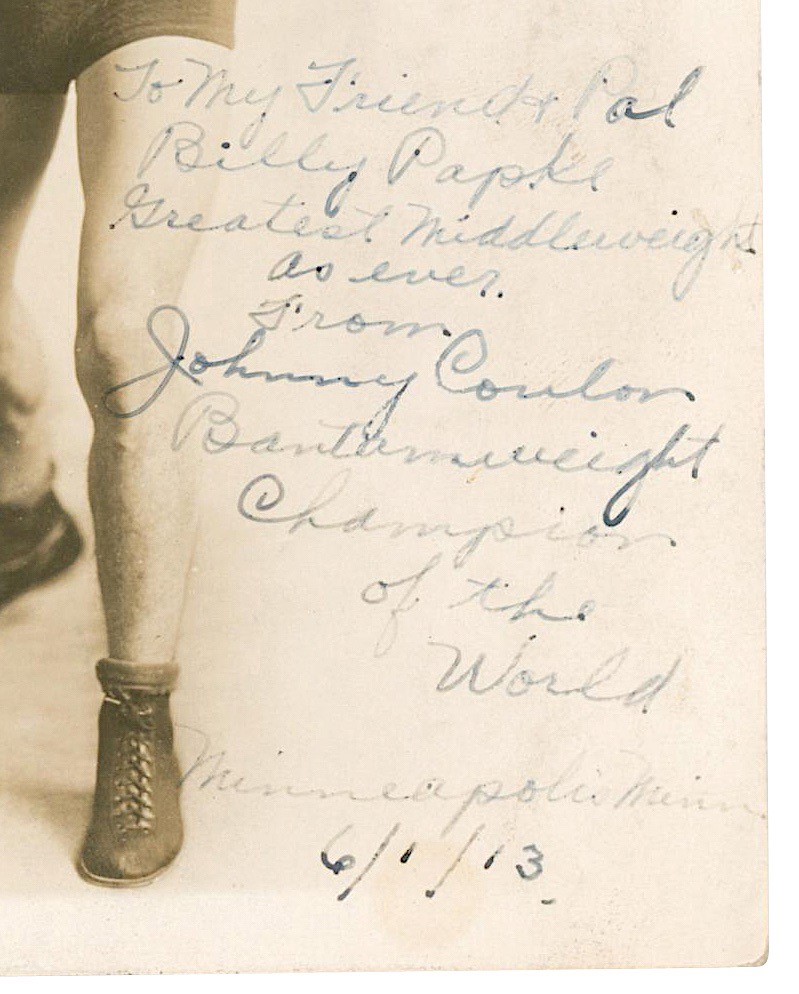 To My Friend & Pal
Billy Papke
Greatest Middleweight
as ever.
From
Johnny Coulon
Bantamweight
Champion
of the
World
Minneapolis Minn.
6/1/13.